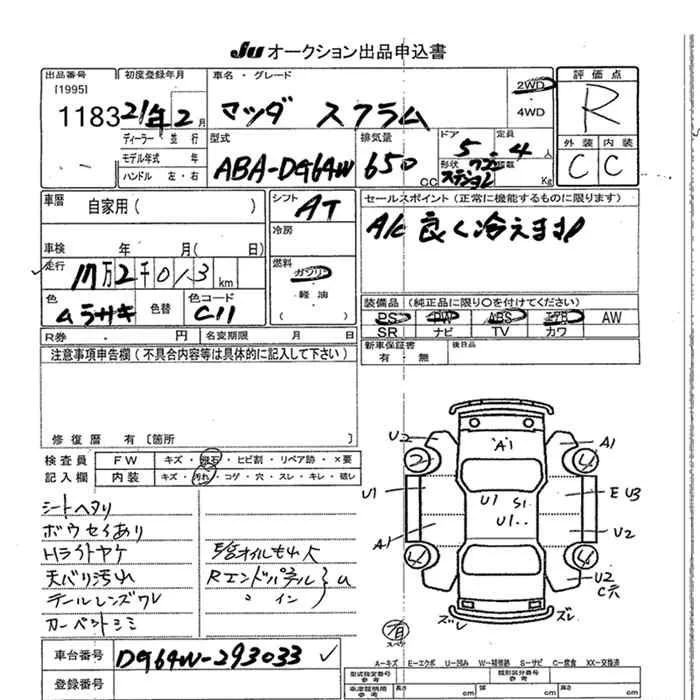 JU オークション出品申込書
出品番号 初度登録年月 車名・グレード 2WD 評価点
[1995]
1183 21年2月 マツダ スクラム ・4WD R
ディーラー・並行 型式 排気量 ドア 定員 外装 内装
モデル年式 年 ABA-DG64W 650 CC 5 4人 C C
ハンドル 左・右 形状 ワゴン 積載 Kg
車歴 自家用( ) シフト AT セールスポイント(正常に機能するものに限ります)
冷房 A/C 良く冷えます!
車検 年 月(日)
走行 万2千013km 燃料 ガソリン
・軽油
( )
色 ムラサキ 色替 色コード C11
装備品(純正品に限り○を付けてください)
PS PW ABS エアB AW
SR ナビ TV カワ
R券 . 円 名変期限 月 日
新車保証書 後日品
有・無
注意事項申告欄(不具合内容等は具体的に記入して下さい)
修復歴 有 〔箇所 〕
検査員 FW キズ・飛石・ヒビ割・リペア跡・×要
記入欄 内装 キズ・汚れ・コゲ・穴・スレ・キレ・破レ
シートヘタリ
ボウセイあり
Hライトヤケ
天バリ汚れ
テールレンズワレ
カーペットシミ
Rエンドパネル U
〃 イン
U2 A1 A1
2 4
U1 U1 S1 E U3
U1..
A1 U2
4 4
U2
C穴
ズレ ズレ
有
スペア
車台番号 DG64W-293033
登録番号
A―キズ E―エクボ U―凹み W―補修跡 S―サビ C―腐食 XX―交換済
型式指定番号 類別区分番号
長さ cm 幅 cm 高さ cm